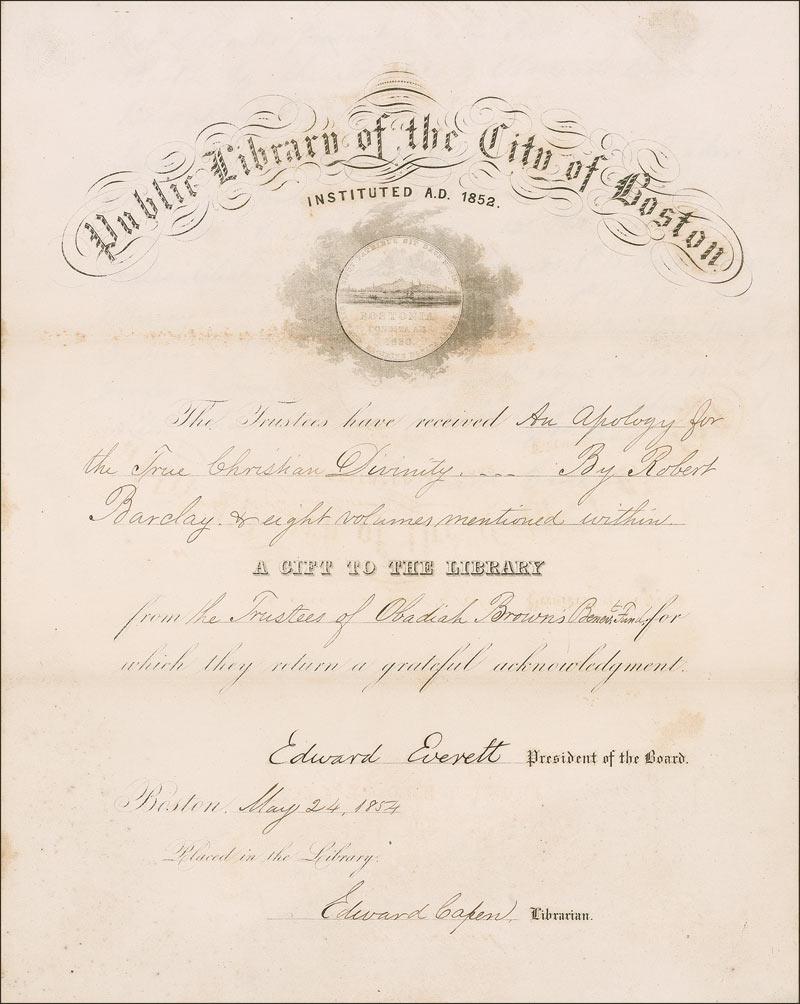 Public Library of the City of Boston
INSTITUTED A.D. 1852.
SICUT PATRIBUS SIT DEUS NOBIS
BOSTONIA
CONDITA A.D.
1630.
The Trustees have received An Apology for
the True Christian Divinity. ... By Robert
Barclay. & eight volumes mentioned within
A GIFT TO THE LIBRARY
from the Trustees of Obadiah Brown's Benevt. Fund, for
which they return a grateful acknowledgment.
Edward Everett President of the Board.
Boston, May 24, 1854
Placed in the Library.
Edward Capen, Librarian.